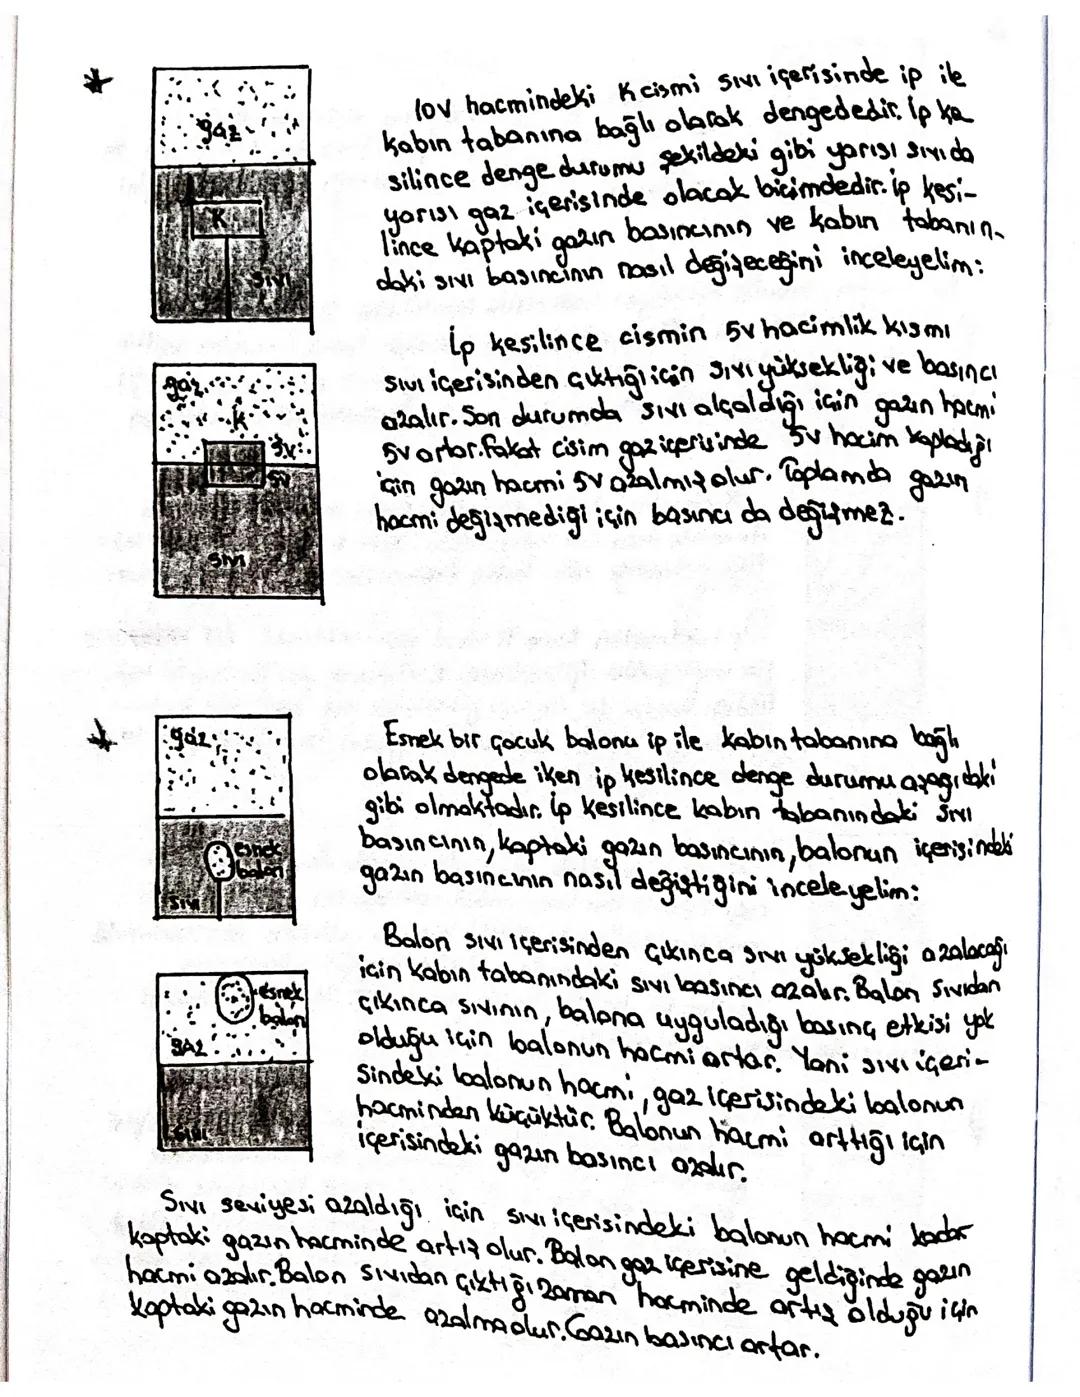 gaz
K
sıvı
10V hacmindeki K cismi sıvı içerisinde ip ile
kabın tabanına bağlı olarak dengededir. İp ke
silince denge durumu şekildeki gibi yarısı sıvıda
yarısı gaz içerisinde olacak biçimdedir. İp kesi-
lince kaptaki gazın basıncının ve kabın tabanın-
daki sıvı basıncının nasıl değişeceğini inceleyelim:
gaz
K
5V
5V
sıvı
İp kesilince cismin 5V hacimlik kısmı
sıvı içerisinden çıktığı için sıvı yüksekliği ve basıncı
azalır. Son durumda sıvı alçaldığı için gazın hacmi
5V artar. Fakat cisim gaz içerisinde 5V hacim kapladığı
için gazın hacmi 5V azalmış olur. Toplamda gazın
hacmi değişmediği için basıncı da değişmez.
gaz
esnek
balon
sıvı
Esnek bir çocuk balonu ip ile kabın tabanına bağlı
olarak dengede iken ip kesilince denge durumu aşağıdaki
gibi olmaktadır. İp kesilince kabın tabanındaki sıvı
basıncının, kaptaki gazın basıncının, balonun içerisindeki
gazın basıncının nasıl değiştiğini inceleyelim:
esnek
balon
gaz
sıvı
Balon sıvı içerisinden çıkınca sıvı yüksekliği azalacağı
için kabın tabanındaki sıvı basıncı azalır. Balon sıvıdan
çıkınca sıvının, balona uyguladığı basınç etkisi yok
olduğu için balonun hacmi artar. Yani sıvı içeri-
sindeki balonun hacmi, gaz içerisindeki balonun
hacminden küçüktür. Balonun hacmi arttığı için
içerisindeki gazın basıncı azalır.
Sıvı seviyesi azaldığı için sıvı içerisindeki balonun hacmi kadar
kaptaki gazın hacminde artış olur. Balon gaz içerisine geldiğinde gazın
hacmi azalır. Balon sıvıdan çıktığı zaman hacminde artış olduğu için
kaptaki gazın hacminde azalma olur. Gazın basıncı artar.